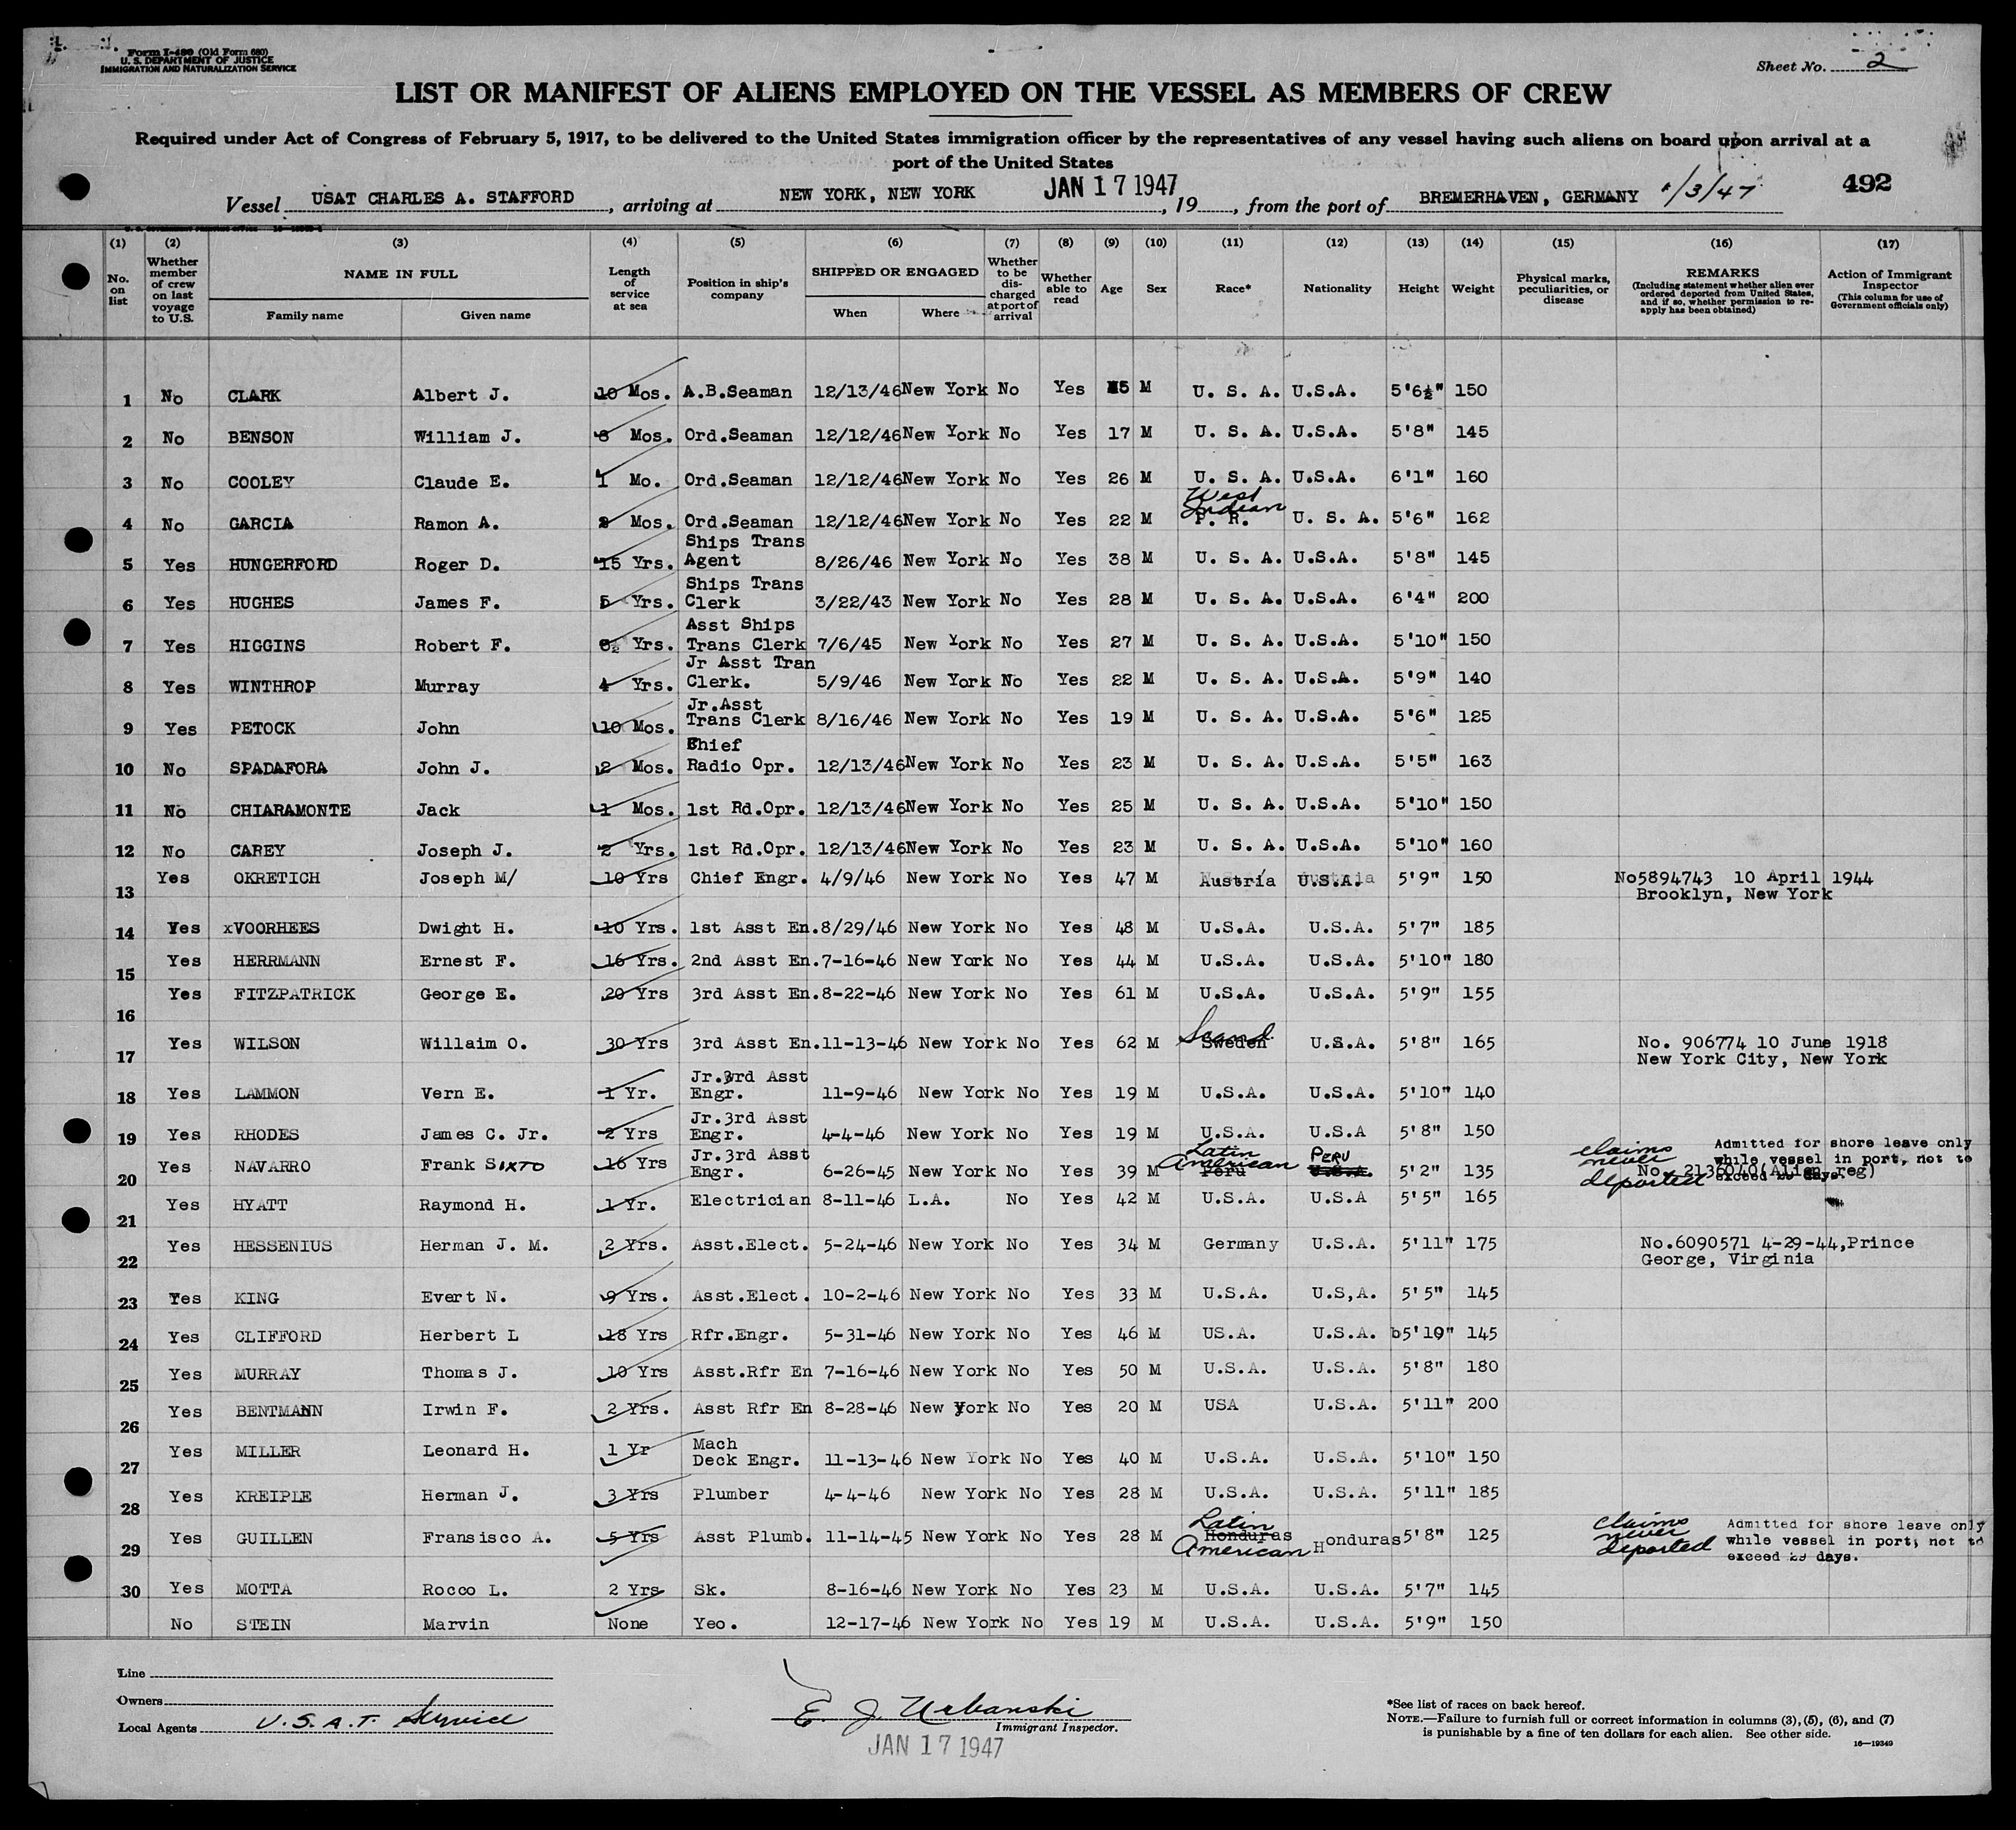 Form I-480 (Old Form 680)
U. S. DEPARTMENT OF JUSTICE
IMMIGRATION AND NATURALIZATION SERVICE
Sheet No. 2
LIST OR MANIFEST OF ALIENS EMPLOYED ON THE VESSEL AS MEMBERS OF CREW
Required under Act of Congress of February 5, 1917, to be delivered to the United States immigration officer by the representatives of any vessel having such aliens on board upon arrival at a
port of the United States
492
Vessel USAT CHARLES A. STAFFORD, arriving at NEW YORK, NEW YORK JAN 17 1947, 19, from the port of BREMERHAVEN, GERMANY 1/3/47
(1) (2) (3) (4) (5) (6) (7) (8) (9) (10) (11) (12) (13) (14) (15) (16) (17)
No. on list
Whether member of crew on last voyage to U.S.
NAME IN FULL
Family name Given name
Length of service at sea
Position in ship's company
SHIPPED OR ENGAGED
When Where
Whether to be discharged at port of arrival
Whether able to read
Age
Sex
Race*
Nationality
Height
Weight
Physical marks, peculiarities, or disease
REMARKS
(Including statement whether alien ever ordered deported from United States, and if so, whether permission to reapply has been obtained)
Action of Immigrant Inspector
(This column for use of Government officials only)
1 No CLARK Albert J. 10 Mos. A.B.Seaman 12/13/46 New York No Yes 5 M U. S. A. U.S.A. 5'6½" 150
2 No BENSON William J. Mos. Ord.Seaman 12/12/46 New York No Yes 17 M U. S. A. U.S.A. 5'8" 145
3 No COOLEY Claude E. 1 Mo. Ord.Seaman 12/12/46 New York No Yes 26 M U. S. A. U.S.A. 6'1" 160
4 No GARCIA Ramon A. 2 Mos. Ord.Seaman 12/12/46 New York No Yes 22 M West Indian P. R. U. S. A. 5'6" 162
5 Yes HUNGERFORD Roger D. 15 Yrs. Ships Trans Agent 8/26/46 New York No Yes 38 M U. S. A. U.S.A. 5'8" 145
6 Yes HUGHES James F. 5 Yrs. Ships Trans Clerk 3/22/43 New York No Yes 28 M U. S. A. U.S.A. 6'4" 200
7 Yes HIGGINS Robert F. Yrs. Asst Ships Trans Clerk 7/6/45 New York No Yes 27 M U. S. A. U.S.A. 5'10" 150
8 Yes WINTHROP Murray 4 Yrs. Jr Asst Tran Clerk. 5/9/46 New York No Yes 22 M U. S. A. U.S.A. 5'9" 140
9 Yes PETOCK John 10 Mos. Jr.Asst Trans Clerk 8/16/46 New York No Yes 19 M U. S. A. U.S.A. 5'6" 125
10 No SPADAFORA John J. 2 Mos. Chief Radio Opr. 12/13/46 New York No Yes 23 M U. S. A. U.S.A. 5'5" 163
11 No CHIARAMONTE Jack 1 Mos. 1st Rd.Opr. 12/13/46 New York No Yes 25 M U. S. A. U.S.A. 5'10" 150
12 No CAREY Joseph J. 2 Yrs. 1st Rd.Opr. 12/13/46 New York No Yes 23 M U. S. A. U.S.A. 5'10" 160
13 Yes OKRETICH Joseph M/ 10 Yrs Chief Engr. 4/9/46 New York No Yes 47 M Austria U.S.A. 5'9" 150 No5894743 10 April 1944
Brooklyn, New York
14 Yes xVOORHEES Dwight H. 10 Yrs. 1st Asst En. 8/29/46 New York No Yes 48 M U.S.A. U.S.A. 5'7" 185
15 Yes HERRMANN Ernest F. 16 Yrs. 2nd Asst En. 7-16-46 New York No Yes 44 M U.S.A. U.S.A. 5'10" 180
16 Yes FITZPATRICK George E. 20 Yrs 3rd Asst En. 8-22-46 New York No Yes 61 M U.S.A. U.S.A. 5'9" 155
17 Yes WILSON Willaim O. 30 Yrs 3rd Asst En. 11-13-46 New York No Yes 62 M Scand. Sweden U.S.A. 5'8" 165 No. 906774 10 June 1918
New York City, New York
18 Yes LAMMON Vern E. 1 Yr. Jr.3rd Asst Engr. 11-9-46 New York No Yes 19 M U.S.A. U.S.A. 5'10" 140
19 Yes RHODES James C. Jr. 2 Yrs Jr.3rd Asst Engr. 4-4-46 New York No Yes 19 M U.S.A. U.S.A 5'8" 150
20 Yes NAVARRO Frank SIXTO 16 Yrs Jr.3rd Asst Engr. 6-26-45 New York No Yes 39 M Latin American Peru PERU U.S.A. 5'2" 135 claims never deported No. 2136040(Alien reg)
Admitted for shore leave only
while vessel in port, not to
exceed 29 days.
21 Yes HYATT Raymond H. 1 Yr. Electrician 8-11-46 L.A. No Yes 42 M U.S.A. U.S.A 5'5" 165
22 Yes HESSENIUS Herman J. M. 2 Yrs. Asst.Elect. 5-24-46 New York No Yes 34 M Germany U.S.A. 5'11" 175 No.6090571 4-29-44,Prince
George, Virginia
23 Yes KING Evert N. 9 Yrs. Asst.Elect. 10-2-46 New York No Yes 33 M U.S.A. U.S,A. 5'5" 145
24 Yes CLIFFORD Herbert L 18 Yrs Rfr.Engr. 5-31-46 New York No Yes 46 M US.A. U.S.A. 5'10" 145
25 Yes MURRAY Thomas J. 10 Yrs Asst.Rfr En 7-16-46 New York No Yes 50 M U.S.A. U.S.A. 5'8" 180
26 Yes BENTMANN Irwin F. 2 Yrs. Asst Rfr En 8-28-46 New York No Yes 20 M USA U.S.A. 5'11" 200
27 Yes MILLER Leonard H. 1 Yr Mach Deck Engr. 11-13-46 New York No Yes 40 M U.S.A. U.S.A. 5'10" 150
28 Yes KREIPLE Herman J. 3 Yrs Plumber 4-4-46 New York No Yes 28 M U.S.A. U.S.A. 5'11" 185
29 Yes GUILLEN Fransisco A. 5 Yrs Asst Plumb. 11-14-45 New York No Yes 28 M Latin American Honduras Honduras 5'8" 125 claims never deported
Admitted for shore leave only
while vessel in port, not to
exceed 29 days.
30 Yes MOTTA Rocco L. 2 Yrs Sk. 8-16-46 New York No Yes 23 M U.S.A. U.S.A. 5'7" 145
No STEIN Marvin None Yeo. 12-17-46 New York No Yes 19 M U.S.A. U.S.A. 5'9" 150
Line
Owners
Local Agents U.S.A.T. Service
E. J. Urbanski
Immigrant Inspector.
JAN 17 1947
*See list of races on back hereof.
NOTE.—Failure to furnish full or correct information in columns (3), (5), (6), and (7)
is punishable by a fine of ten dollars for each alien. See other side.
16—19349